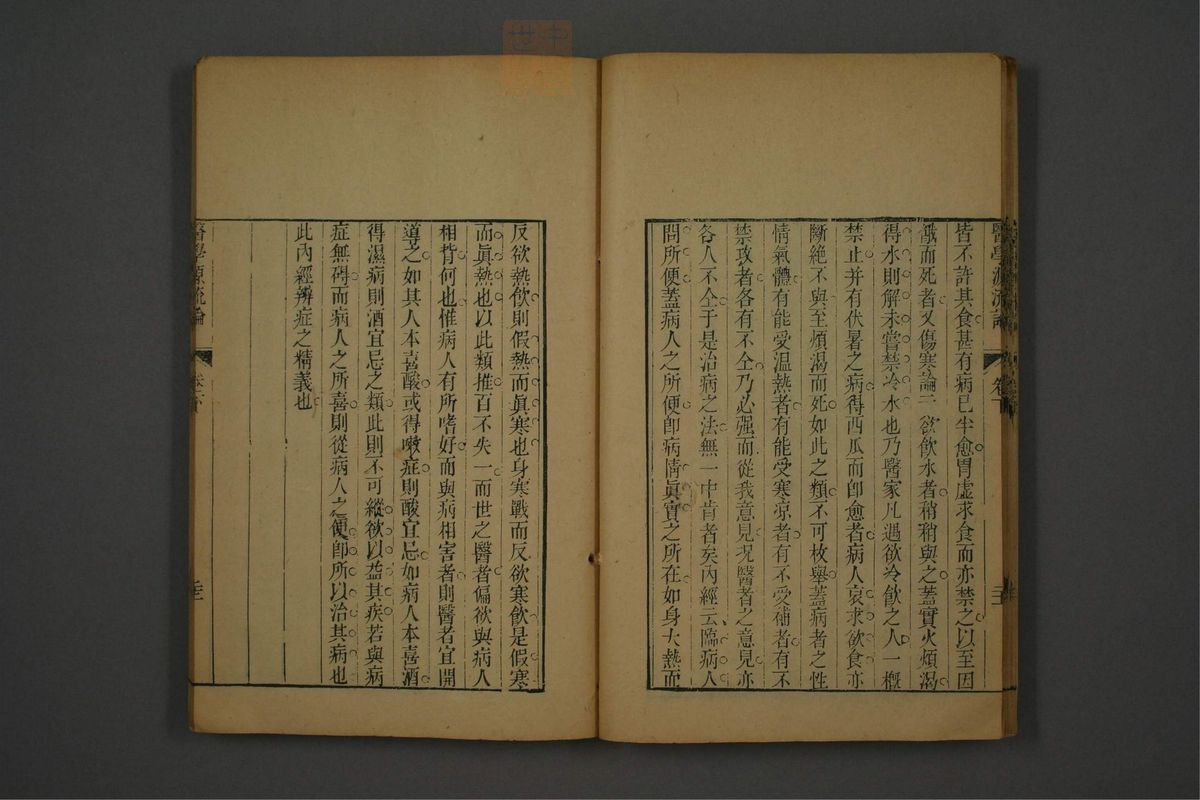 皆不許其食甚有病已半愈胃虛求食而亦禁之以至因
餓而死者又傷寒論云欲飲水者稍稍與之蓋實火煩渴
得水則解未嘗禁冷水也乃醫家凡遇欲冷飲之人一槪
禁止并有伏暑之病得西瓜而卽愈者病人哀求欲食亦
斷絕不與至煩渴而死如此之類不可枚舉蓋病者之性
情氣體有能受温熱者有能受寒涼者有不受補者有不
禁攻者各有不仝乃必强而從我意見況醫者之意見亦
各人不仝于是治病之法無一中肯者矣內經云臨病人
問所便蓋病人之所便卽病情眞實之所在如身大熱而
反欲熱飲則假熱而眞寒也身寒戰而反欲寒飲是假寒
而眞熱也以此類推百不失一而世之醫者偏欲與病人
相背何也惟病人有所嗜好而與病相害者則醫者宜開
導之如其人本喜酸或得嗽症則酸宜忌如病人本喜酒
得濕病則酒宜忌之類此則不可縱欲以益其疾若與病
症無碍而病人之所喜則從病人之便卽所以治其病也
此內經辨症之精義也
醫學源流論
卷下